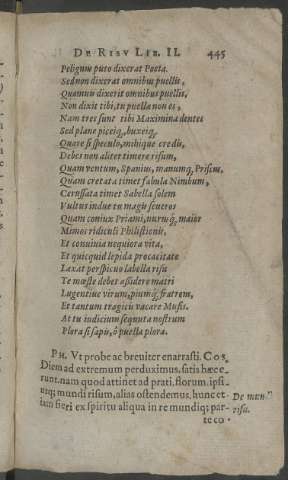 DE RISV LIB. II. 445
Pelignus puto dixerat Poeta.
Sed non dixerat omnibus puellis,
Quamuis dixerit omnibus puellis,
Non dixit tibi, tu puella non es,
Nam tres sunt tibi Maximina dentes
Sed plane piceiq́, buxeiq́.
Quare si speculo, mihique credis,
Debes non aliter timere risum,
Quam ventum, Spanius, manumq́, Priscus,
Quam cretata timet fabula Nimbum,
Cerussata timet Sabella solem
Vultus indue tu magis seueros
Quam coniux Priami, nurusq́, maior
Mimos ridiculi Philistionis,
Et conuiuia nequiora vita,
Et quicquid lepida procacitate
Laxat perspicuo labella risu
Te mœstæ debet assidere matri
Lugentiue virum, piumq́, fratrem,
Et tantum tragicis vacare Musis.
At tu iudicium sequuta nostrum
Plora si sapis, ô puella plora.
PH. Vt probe ac breuiter enarrasti. COS.
Diem ad extremum perduximus, satis hæc e-
runt, nam quod attinet ad prati, florum, ipsi-
usq; mundi risum, alias ostendemus, hunc et-
iam fieri ex spiritu aliqua in re mundiq; par-
te co-
De mun
risu.